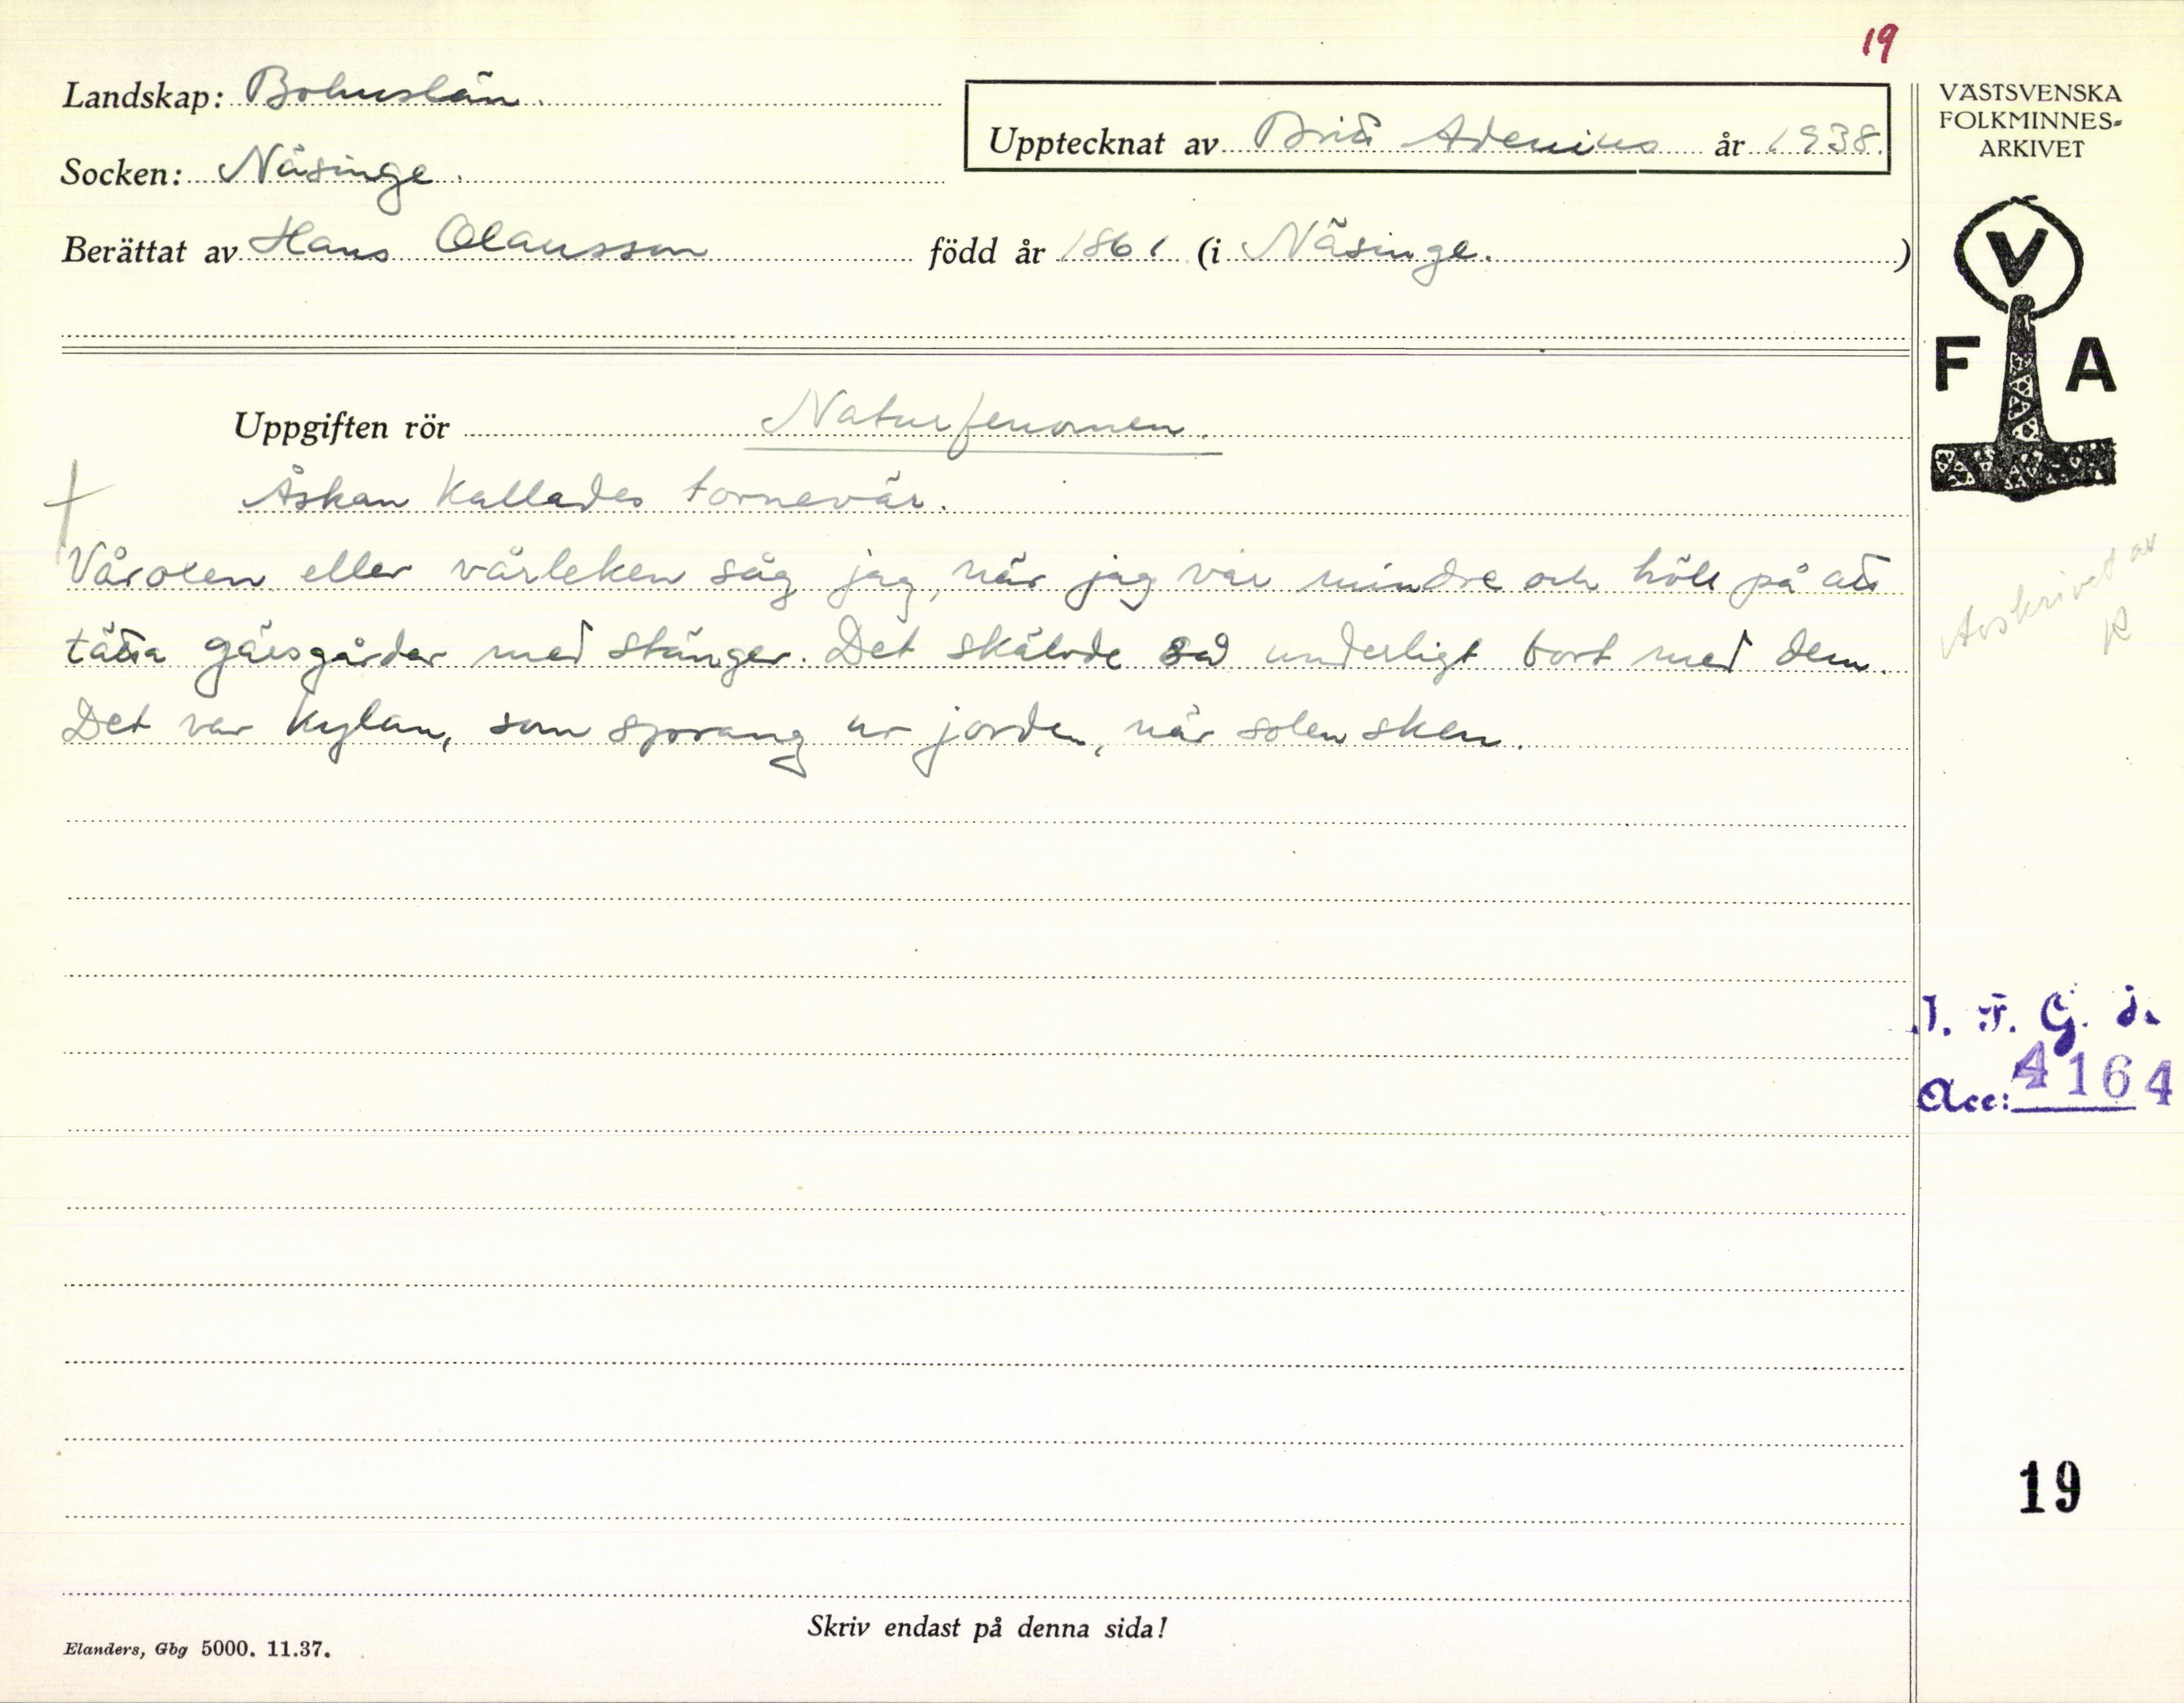 19
Landskap: Bohuslän.
Upptecknat av Britt Adenius år 1938.
Socken: Näsinge.
Berättat av Hans Olausson född år 1861 (i Näsinge.)
VÄSTSVENSKA
FOLKMINNES-
ARKIVET
V
F A
Uppgiften rör Naturfenomen.
Åskan kallades tornevär.
Våroxen eller vårleken såg jag, när jag var mindre och höll på att
tätta gärsgårdar med stänger. Det skälvde så underligt bort med dem.
Det var kylan, som sprang ur jorden, när solen sken.
Avskrivet av
R
I. F. G. S.
Acc: 4164
19
Skriv endast på denna sida!
Elanders, Gbg 5000. 11.37.